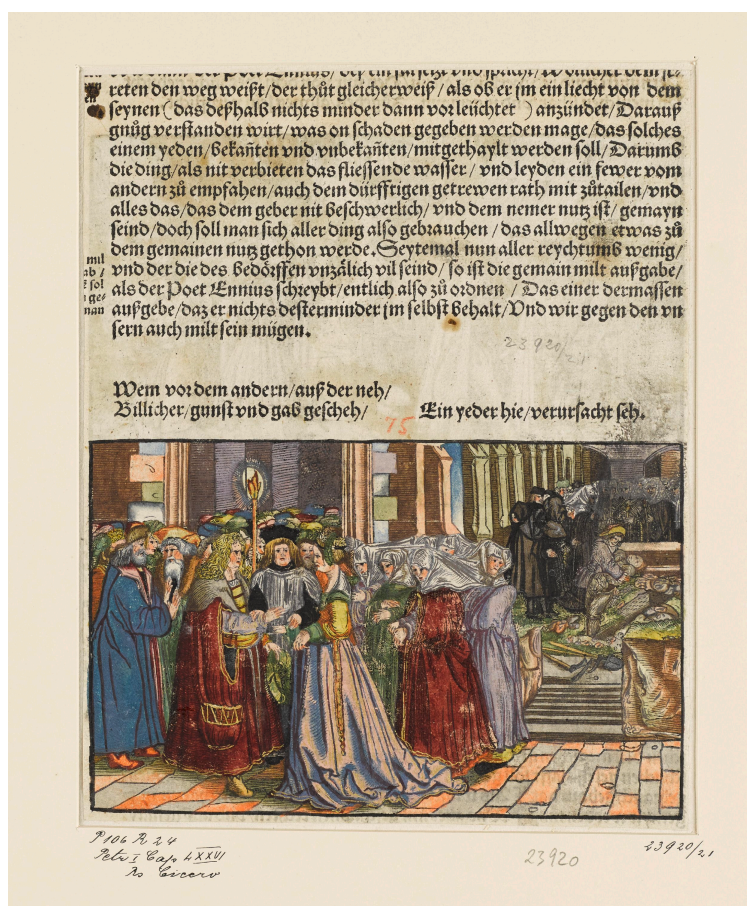 reten den weg weißt/der thůt gleicherweiß/als ob er jm ein liecht von dem
seynen (das deßhalb nichts minder dann vorleüchtet) anzündet/Darauß
gnůg verstanden wirt/was on schaden gegeben werden mage/das solches
einem yeden/bekañten vnd vnbekañten/mitgethaylt werden soll/Darumb
die ding/als nit verbieten das fliessende wasser/vnd leyden ein fewer vom
andern zů empfahen/auch dem dürfftigen getrewen rath mit zůtailen/vnd
alles das/das dem geber nit beschwerlich/vnd dem nemer nutz ist/gemayn
seind/doch soll man sich aller ding also gebrauchen/das allwegen etwas zů
dem gemainen nutz gethon werde. Seytemal nun aller reychtumb wenig/
vnd der die des bedörffen vnzälich vil seind/so ist die gemain milt außgabe/
als der Poet Ennius schreybt/entlich also zů ordnen/Das einer dermassen
außgebe/daz er nichts desterminder jm selbst behalt/Vnd wir gegen den vn
sern auch milt sein mügen.
mil
ab /
sol
ge-
nan
23920/21
Wem vor dem andern/auß der neh/
Billicher/gunst vnd gab gescheh/ Ein yeder hie/verursacht seh.
75
P 106 R 24
Petr I Cap LXXVI
Rs Cicero
23920
23920/21